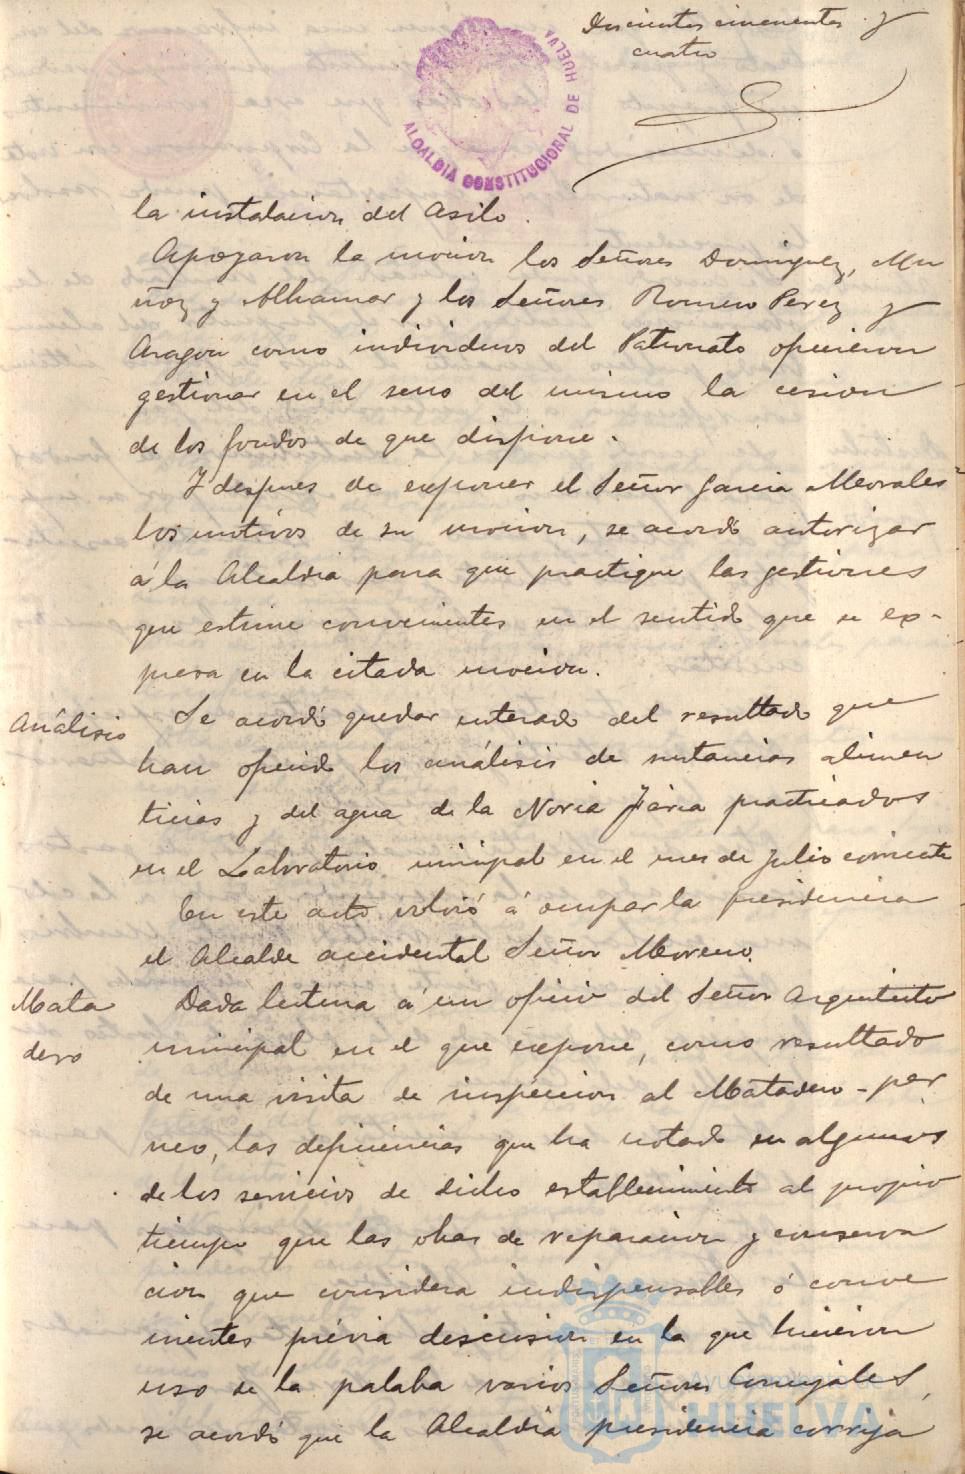 Doscientos cincuenta y
cuatro
ALCALDÍA CONSTITUCIONAL DE HUELVA
la instalacion del Asilo.
Apoyaron la mocion los Señores Dominguez, Mu
ñoz y Alhamar y los Señores Romero Perez y
Aragon como individuos del Patronato ofrecieron
gestionar en el seno del mismo la cesion
de los fondos de que dispone.
Y despues de exponer el Señor Garcia Morales
los motivos de su mocion, se acordó autorizar
á la Alcaldia para que practique las gestiones
que estime convenientes en el sentido que se ex-
presa en la citada mocion.
Análisis
Se acordó quedar enterado del resultado que
han ofrecido los análisis de sustancias alimen
ticias y del agua de la Noria practicados
en el Laboratorio municipal en el mes de Julio corriente
En este acto volvió á ocupar la presidencia
el Alcalde accidental Señor Moreno.
Mata
dero
Dada lectura á un oficio del Señor Arquitecto
municipal en el que expone, como resultado
de una visita de inspeccion al Matadero-per
neo, las deficiencias que ha notado en algunos
de los servicios de dicho establecimiento al propio
tiempo que las obras de reparacion y conserva
cion que considera indispensables ó conve
nientes prévia discusion en la que hicieron
uso de la palaba varios Señores Concejales,
se acordó que la Alcaldia presidencia corrija
Ayuntamiento de
HUELVA